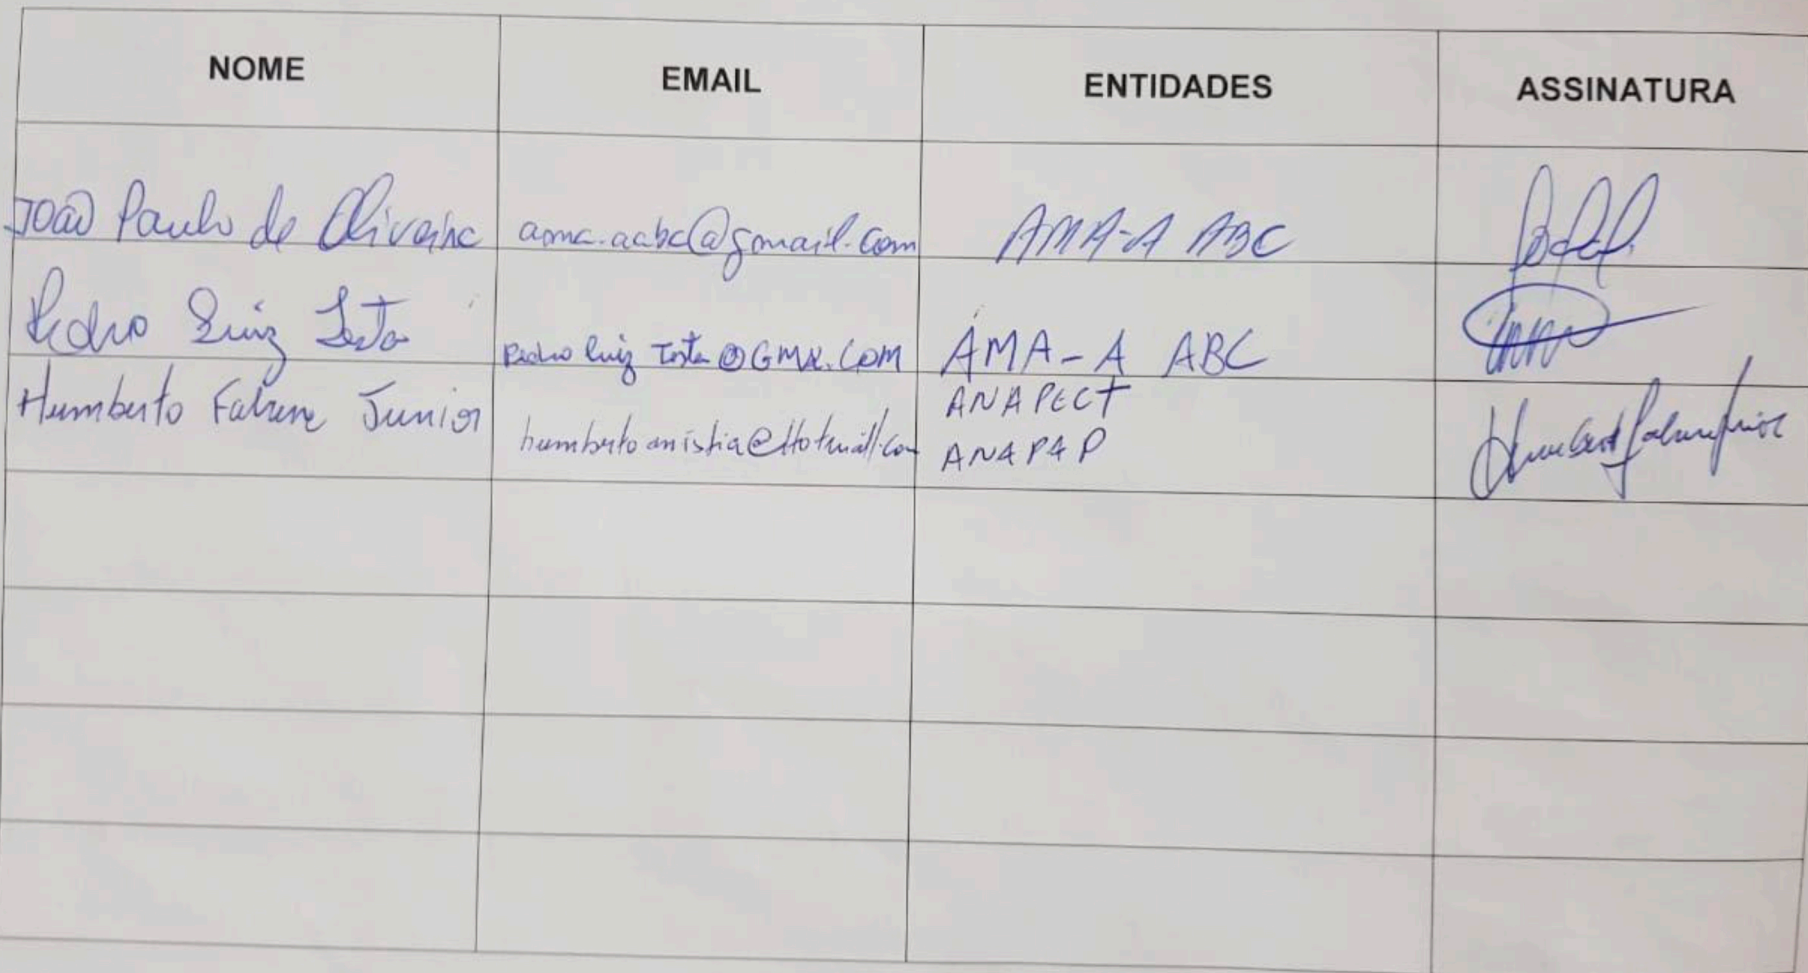 NOME EMAIL ENTIDADES ASSINATURA
João Paulo de Oliveira ama.aabc@gmail.com AMA-A ABC
Pedro Luiz Testa Pedro luiz Testa@GMX.COM AMA-A ABC
Humberto Junior humbertoanistia@Hotmail.com ANAPECT
ANAPAP